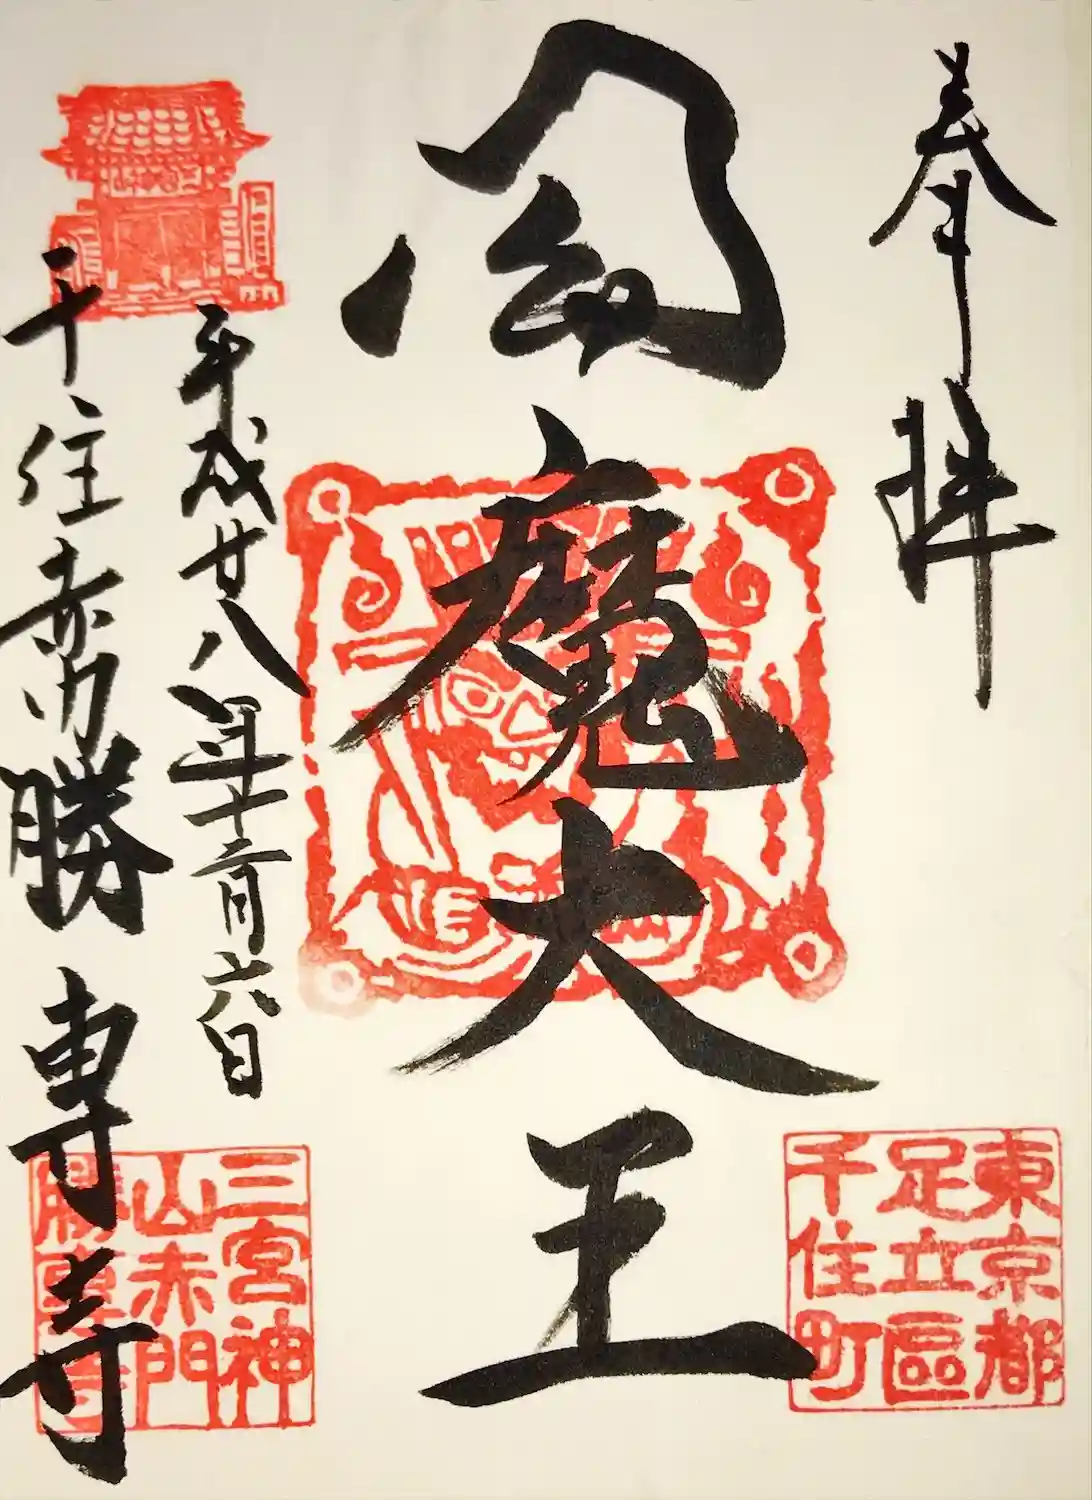 奉拝
東京都
足立區
千住町
閻魔大王
平成廿八年十二月六日
千住赤門勝専寺
三宮神
山赤門
勝專寺